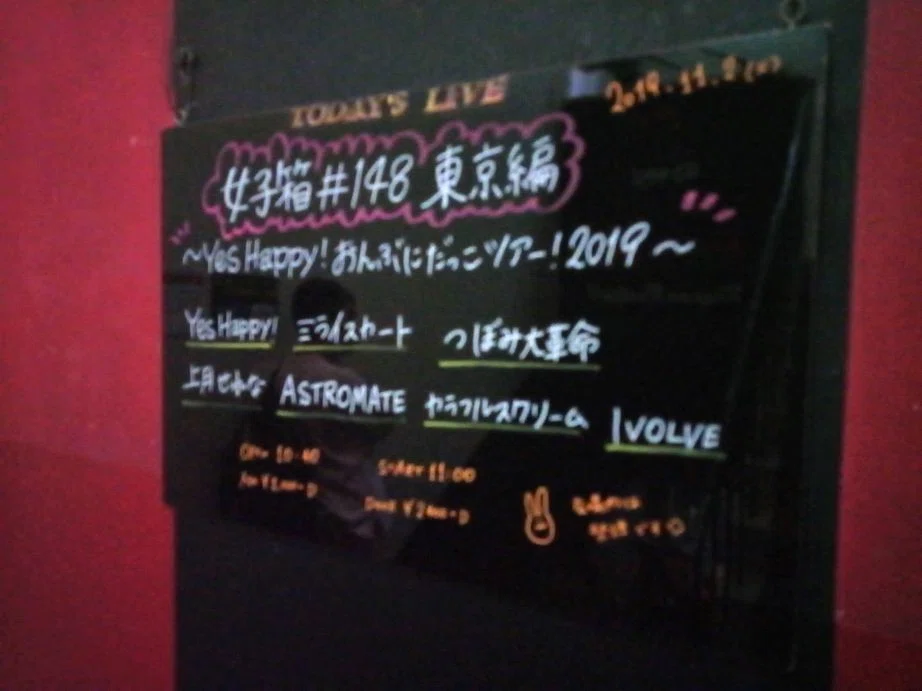 TODAY'S LIVE
2019.11.2(土)
女子箱#148 東京編
~Yes Happy!おんぶにだっこツアー!2019~
Yes Happy! ミライスカート つぼみ大革命
上月せれな ASTROMATE カラフルスクリーム IVOLVE
OPEN 10:40 START 11:00